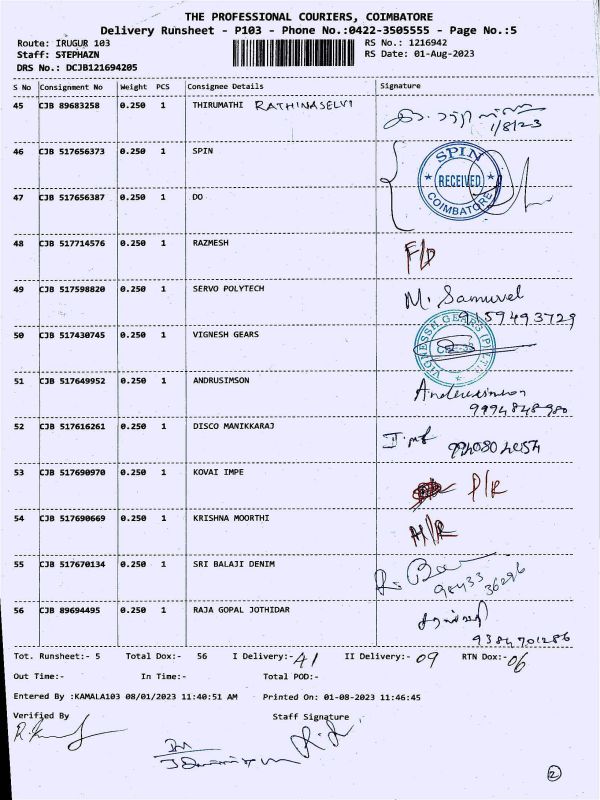 THE PROFESSIONAL COURIERS, COIMBATORE
Delivery Runsheet - P103 - Phone No.:0422-3505555 - Page No.:5
Route: IRUGUR 103 RS No.: 1216942
Staff: STEPHAZN RS Date: 01-Aug-2023
DRS No.: DCJB121694205
S No Consignment No Weight PCS Consignee Details Signature
45 CJB 89683258 0.250 1 THIRUMATHI RATHINASELVI
1/8/23
46 CJB 517656373 0.250 1 SPIN
SPIN RECEIVED COIMBATORE
47 CJB 517656387 0.250 1 DO
48 CJB 517714576 0.250 1 RAZMESH F/D
49 CJB 517598820 0.250 1 SERVO POLYTECH M. Samuvel
9159493729
50 CJB 517430745 0.250 1 VIGNESH GEARS
51 CJB 517649952 0.250 1 ANDRUSIMSON Andrusimson
9994848980
52 CJB 517616261 0.250 1 DISCO MANIKKARAJ
53 CJB 517690970 0.250 1 KOVAI IMPE P/R
54 CJB 517690669 0.250 1 KRISHNA MOORTHI
55 CJB 517670134 0.250 1 SRI BALAJI DENIM
98433 36296
56 CJB 89694495 0.250 1 RAJA GOPAL JOTHIDAR
9384701286
Tot. Runsheet:- 5 Total Dox:- 56 I Delivery:- 41 II Delivery:- 09 RTN Dox:- 06
Out Time:- In Time:- Total POD:-
Entered By :KAMALA103 08/01/2023 11:40:51 AM Printed On: 01-08-2023 11:46:45
Verified By Staff Signature
2